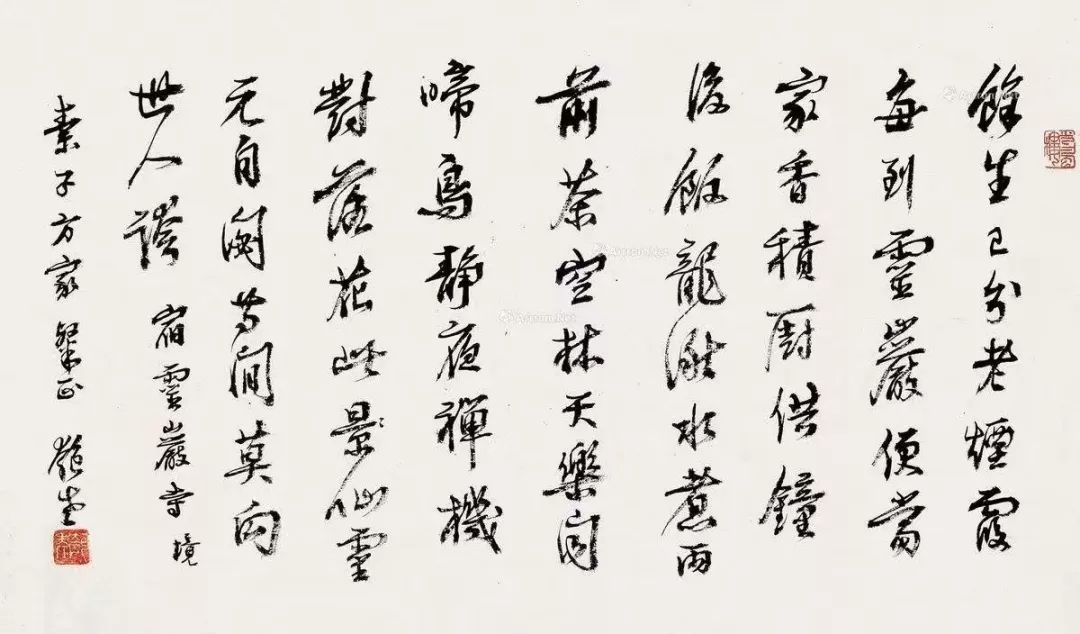 餘生已分老煙霞
每到靈巖便當
家香積厨供鐘
後飯龍湫水煮雨
前茶空林天樂聞
啼鳥静夜禪機
對落花此景仙靈
元自閟等閒莫向
世人誇 宿靈巖寺 境
素子方家粲正
Artron.Net